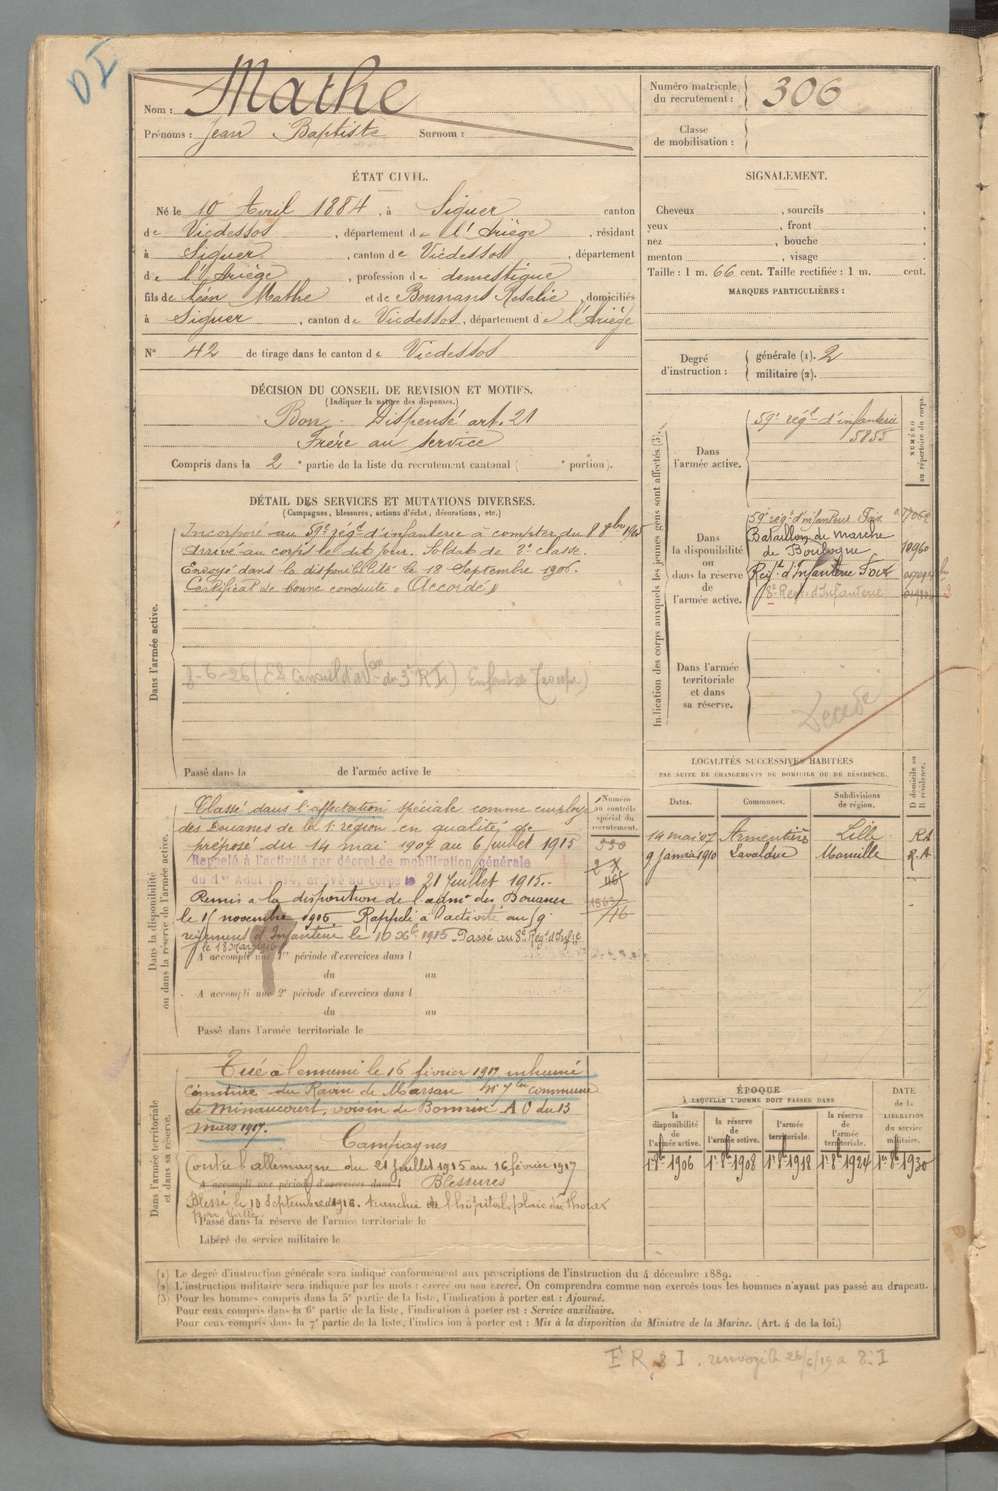 DI
Nom : Mathe
Prénoms : Jean Baptiste Surnom :
Numéro matricule du recrutement : 306
Classe de mobilisation :
ÉTAT CIVIL.
Né le 10 Avril 1884, à Siguer canton
de Vicdessos, département de l'Ariège, résidant
à Siguer, canton de Vicdessos, département
de l'Ariège, profession de domestique
fils de Léon Mathe et de Bonnans Rosalie, domiciliés
à Siguer, canton de Vicdessos, département de l'Ariège
N° 42 de tirage dans le canton de Vicdessos
SIGNALEMENT.
Cheveux , sourcils ,
yeux , front ,
nez , bouche ,
menton , visage .
Taille : 1 m. 66 cent. Taille rectifiée : 1 m. cent.
MARQUES PARTICULIÈRES :
Degré d'instruction :
générale (1). 2
militaire (2).
DÉCISION DU CONSEIL DE REVISION ET MOTIFS.
(Indiquer la nature des dispenses.)
Bon. Dispensé art. 21
Frère au service
Compris dans la 2e partie de la liste du recrutement cantonal ( e portion).
DÉTAIL DES SERVICES ET MUTATIONS DIVERSES.
(Campagnes, blessures, actions d'éclat, décorations, etc.)
Dans l'armée active.
Incorporé au 59e régt d'infanterie à compter du 8 8bre 1905
Arrivé au corps le dit jour. Soldat de 2e classe.
Envoyé dans la disponibilité le 18 Septembre 1906.
Certificat de bonne conduite « Accordé »
Passé dans la de l'armée active le
Indication des corps auxquels les jeunes gens sont affectés (3).
NUMÉRO au répertoire du corps.
Dans l'armée active.
59e régt d'infanterie
5855
Dans la disponibilité ou dans la réserve de l'armée active.
59e régt d'infanterie Foix
Bataillon de marche
de Boulogne 10960
Regt d'Infanterie Foix
8e Regt d'Infanterie
Dans l'armée territoriale et dans sa réserve.
Décédé
LOCALITÉS SUCCESSIVES HABITÉES
PAR SUITE DE CHANGEMENTS DE DOMICILE OU DE RÉSIDENCE.
Dates. Communes. Subdivisions de région. D domicile ou R résidence.
14 mai 07 Armentières Lille RA
9 janvier 1910 Lavalduc Marseille R.A
Dans la disponibilité ou dans la réserve de l'armée active.
Numéro au contrôle spécial du recrutement.
Classé dans l'affectation spéciale comme employé
des Douanes de la 1e région en qualité de
préposé du 14 mai 1907 au 6 juillet 1915
Rappelé à l'activité par décret de mobilisation générale
du 1er Aout 1914, arrivé au corps le 21 Juillet 1915.-
Remis à la disposition de l'admon des Douanes
le 15 novembre 1915 Rappelé à l'activité au 59
régiment d'Infanterie le 10 Xbre 1915. Passé au 8e Régt d'Infie
le 18 mars 1916
A accompli une 1re période d'exercices dans l
du au
A accompli une 2e période d'exercices dans l
du au
Passé dans l'armée territoriale le
Dans l'armée territoriale et dans sa réserve.
Tué à l'ennemi le 16 février 1917 inhumé
cimetière du Ravin de Marson commune
de Minaucourt, voisin de Bonnin A O du 15
mars 1917.
Campagnes
Contre l'allemagne du 21 juillet 1915 au 16 février 1917
A accompli une période d'exercices dans l
Blessures
Blessé le 13 Septembre 1916. tranchée de l'hôpital, plaie du thorax
par balle
Passé dans la réserve de l'armée territoriale le
Libéré du service militaire le
ÉPOQUE
À LAQUELLE L'HOMME DOIT PASSER DANS
la disponibilité de l'armée active. la réserve de l'armée active. l'armée territoriale. la réserve de l'armée territoriale.
DATE de la LIBÉRATION du service militaire.
1er 8bre 1906 1er 8bre 1908 1er 8bre 1918 1er 8bre 1924 1er 8bre 1930
(1) Le degré d'instruction générale sera indiqué conformément aux prescriptions de l'instruction du 4 décembre 1889.
(2) L'instruction militaire sera indiquée par les mots : exercé ou non exercé. On comprendra comme non exercés tous les hommes n'ayant pas passé au drapeau.
(3) Pour les hommes compris dans la 5e partie de la liste, l'indication à porter est : Ajourné.
Pour ceux compris dans la 6e partie de la liste, l'indication à porter est : Service auxiliaire.
Pour ceux compris dans la 7e partie de la liste, l'indication à porter est : Mis à la disposition du Ministre de la Marine. (Art. 4 de la loi.)
E R 8 I. renvoyé le 26/6/19 a 8. I